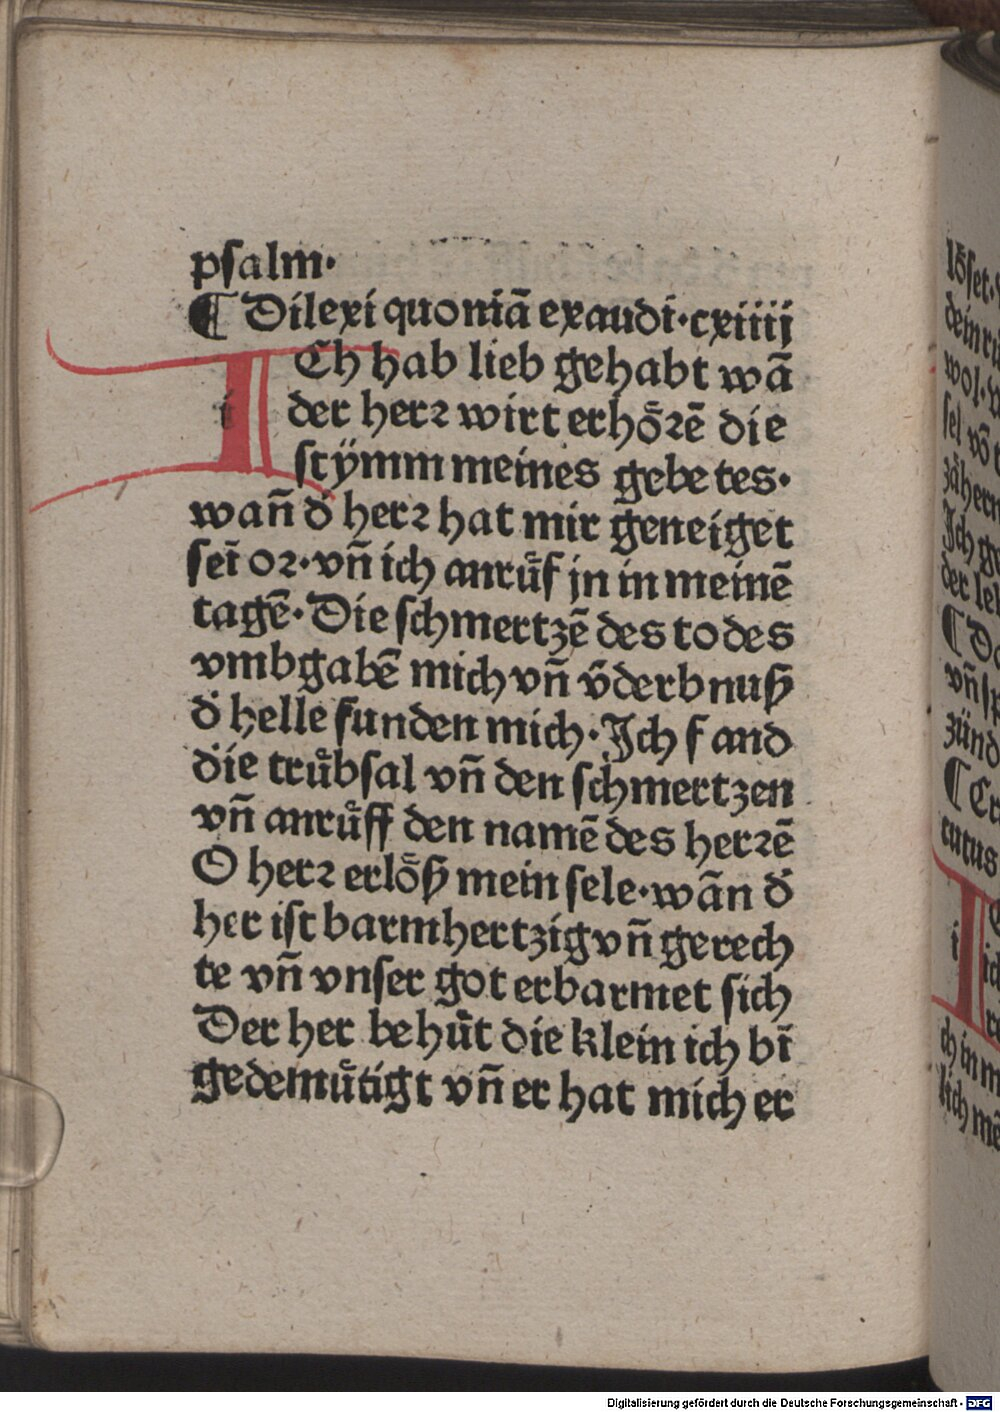 psalm·
¶ Dilexi quoniā exaudi·cxiiij
ICh hab lieb gehabt wā
i der herꝛ wirt erhoͤꝛē die
stÿmm meines gebetes·
wan̄ d̄ herꝛ hat mir geneiget
sei̅ oꝛ·vn̄ ich anruͤf jn in meinē
tagē·Die schmertzē des todes
vmbgabē mich vn̄ v̄derbnuß
d̄ helle funden mich·Jch fand
die truͤbsal vn̄ den schmertzen
vn̄ anruͤff den namē des herꝛē
O herꝛ erloͤß mein sele·wān d̄
her ist barmhertzig vn̄ gerech
te vn̄ vnser got erbarmet sich
Der her behuͤt die klein ich bī
gedemuͤtigt vn̄ er hat mich er
loͤset·
dein
wol·
sel vō
zähern
Jch
der
¶
vn̄
zünd
¶
i
ch in
lich
Digitalisierung gefördert durch die Deutsche Forschungsgemeinschaft - DFG